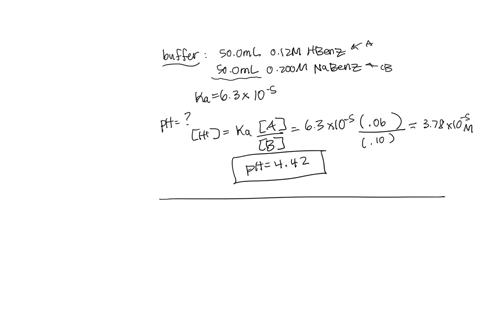 buffer: 50.0mL 0.12M HBenz ← A
50.0mL 0.200M NaBenz ← CB
Ka = 6.3 x 10^-5
pH = ?
[H+] = Ka [A]/[B] = 6.3 x10^-5 (.06)/(.10) = 3.78 x10^-5 M
pH = 4.42